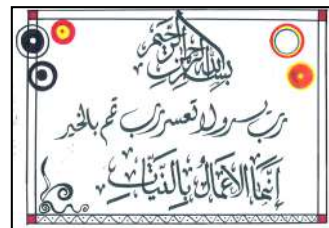 بسم الله الرحمن الرحيم
رب يسر ولا تعسر رب تمم بالخير
إنما الأعمال بالنيات